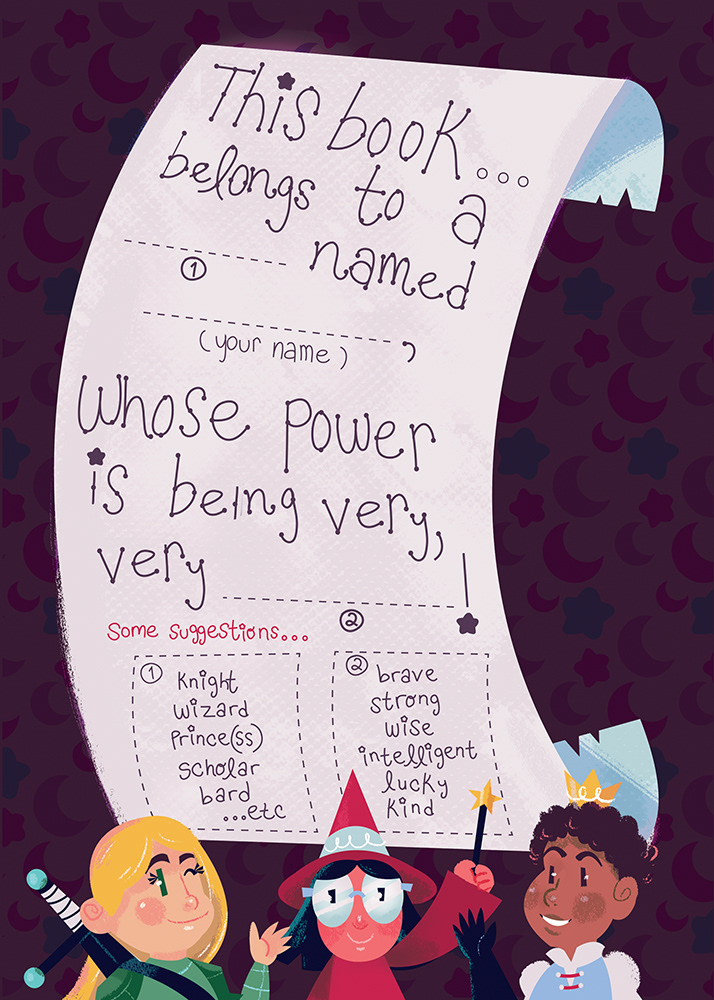 This book...
belongs to a
named
①
(your name) ,
Whose power
is being very,
very !
②
Some suggestions...
①
Knight
Wizard
Prince(ss)
Scholar
bard
...etc
②
brave
strong
wise
intelligent
lucky
kind